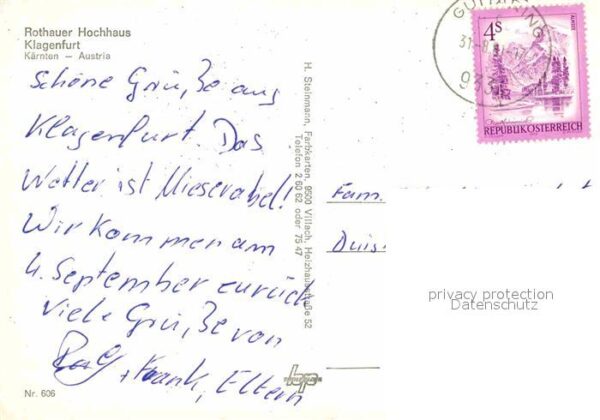 Rothauer Hochhaus
Klagenfurt
Kärnten — Austria
Schöne Grüße aus
Klagenfurt. Das
Wetter ist Miserabel!
Wir kommen am
4. September zurück
Viele Grüße von
Rolf, Frank, Eltern
Nr. 606
H. Steinmann, Farbkarten, 9500 Villach, Heizhausstraße 52
Telefon 2 60 62 oder 75 47
GUTTARING
4S
REPUBLIK ÖSTERREICH
Fam.
Duis
privacy protection
Datenschutz